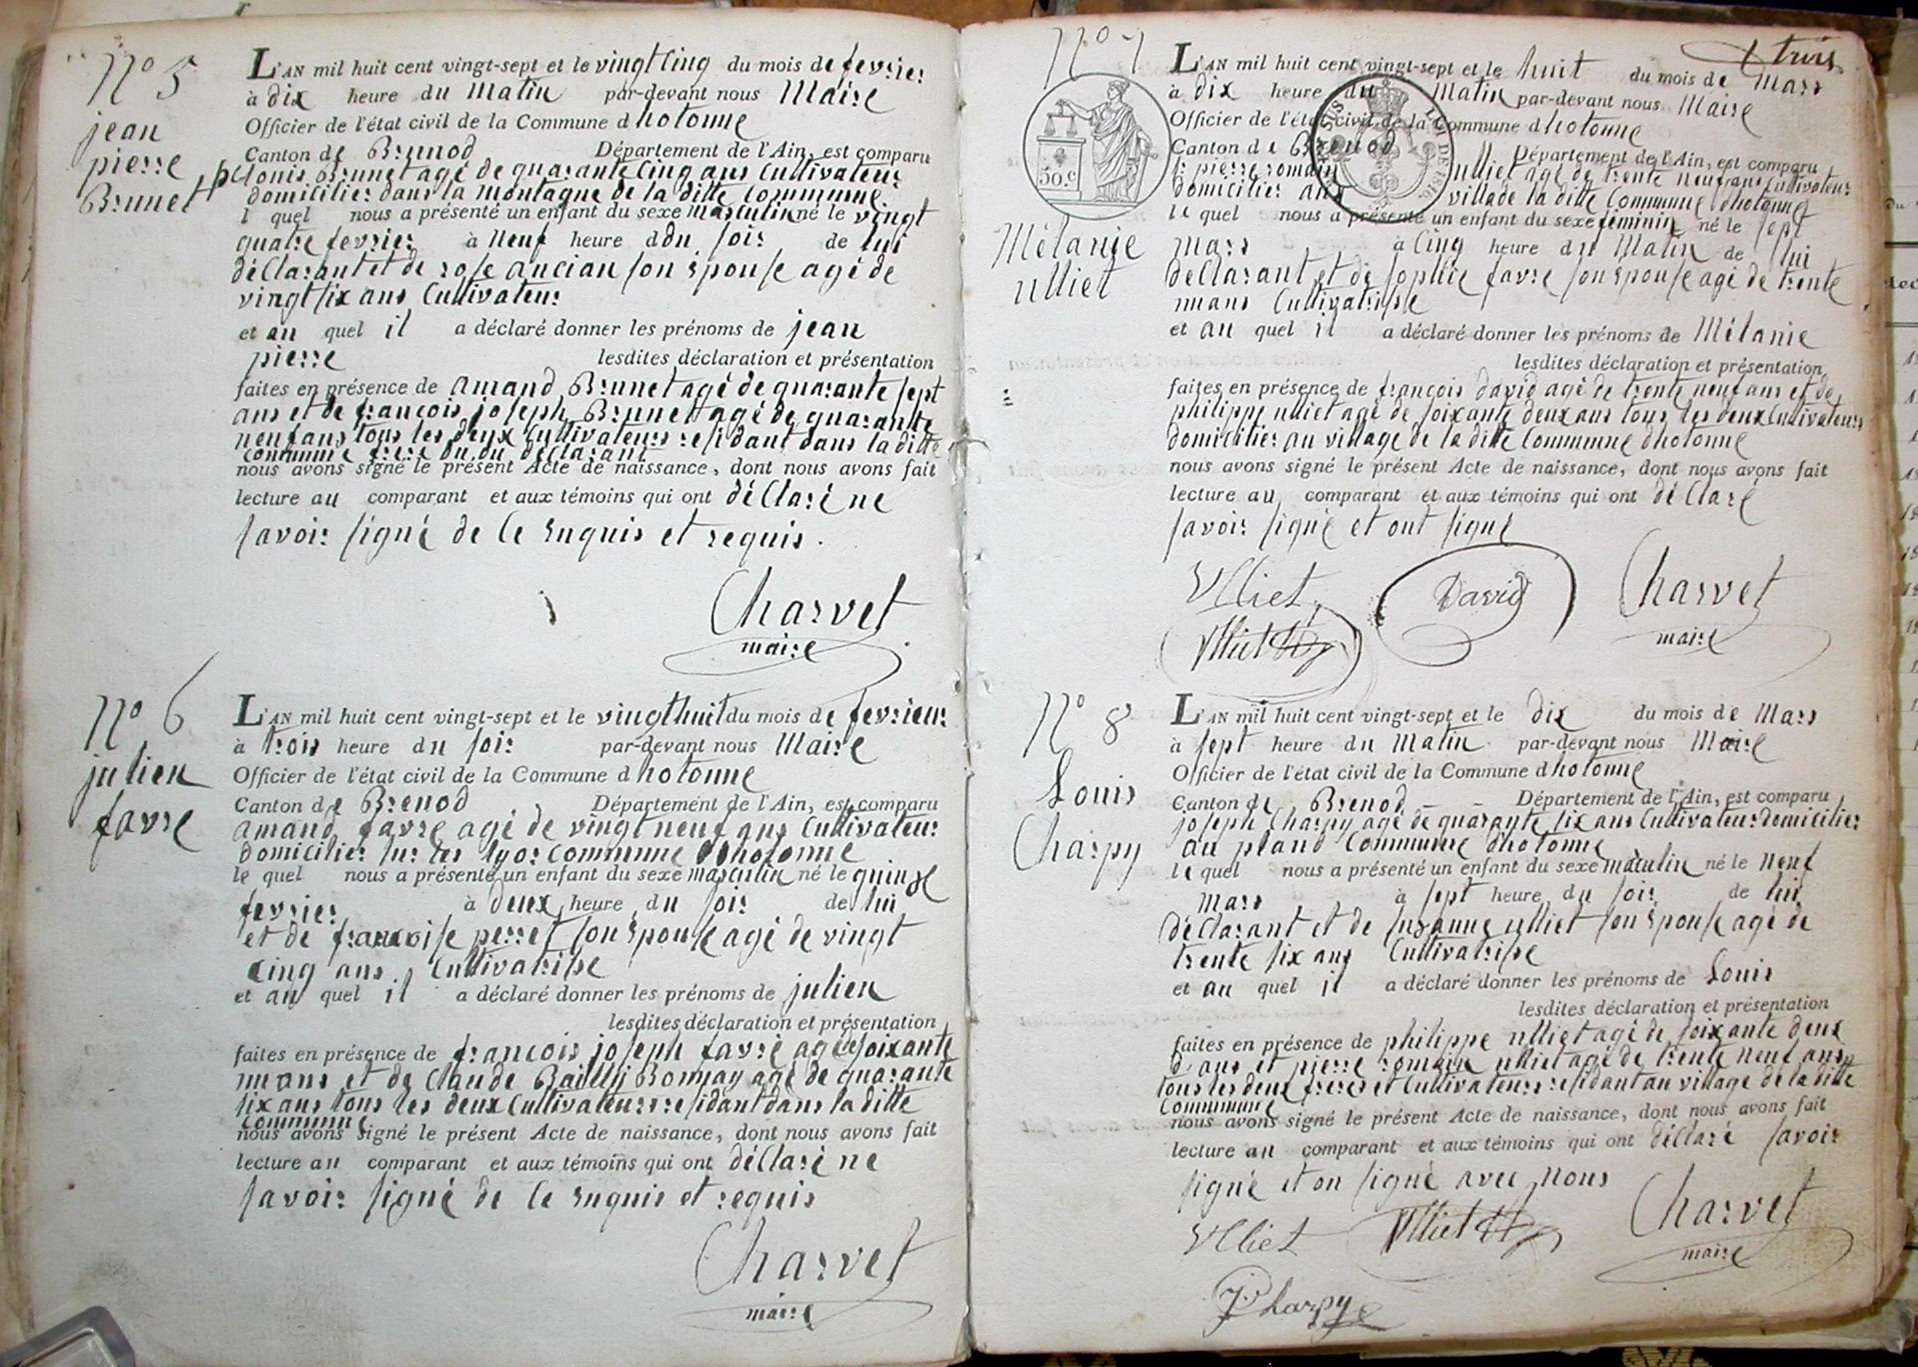 N° 5
jean
pierre
Brunet
L'AN mil huit cent vingt-sept et le vingt cinq du mois de fevrier
à dix heure du matin par-devant nous Maire
Officier de l'état civil de la Commune d hotonne
Canton de Brenod Département de l'Ain, est comparu
louis Brunet agé de quarante cinq ans Cultivateur
domicilier dans la montagne de la ditte Commune
l quel nous a présenté un enfant du sexe masculin né le vingt
quatre fevrier à neuf heure ddu soir de lui
déclarant et de rose ancian son épouse agé de
vingt six ans Cultivateur
et au quel il a déclaré donner les prénoms de jean
pierre lesdites déclaration et présentation
faites en présence de amand Brunet agé de quarante sept
ans et de françois joseph Brunet agé de quarante
neuf ans tous les deux Cultivateurs residant dans la ditte
Commune frere du du déclarant
nous avons signé le présent Acte de naissance, dont nous avons fait
lecture au comparant et aux témoins qui ont déClaré ne
savoir signé de Ce enquis et requis.
Charvet
maire
N° 6
julien
favre
L'AN mil huit cent vingt-sept et le vingthuit du mois de fevrier
à trois heure du soir par-devant nous Maire
Officier de l'état civil de la Commune d hotonne
Canton de Brenod Département de l'Ain, est comparu
amand favre agé de vingt neuf ans Cultivateur
domicilier sur les lyor commune dhotonne
le quel nous a présenté un enfant du sexe masculin né le quinze
fevrier à deux heure du soir de lui
et de francoise perret son épouse agé de vingt
cinq ans Cultivatrisse
et au quel il a déclaré donner les prénoms de julien
lesdites déclaration et présentation
faites en présence de françois joseph favre agé soixante
nu ans et de Claude Bailly Bonnay agé de quarante
six ans tous les deux Cultivateurs residant dans la ditte
Commune
nous avons signé le présent Acte de naissance, dont nous avons fait
lecture au comparant et aux témoins qui ont déClaré ne
savoir signé de Ce enquis et requis
Charvet
maire
trois
N° 7
50.c
Mélanie
ulliet
L'AN mil huit cent vingt-sept et le huit du mois de Mars
à dix heure du Matin par-devant nous Maire
Officier de l'état civil de la Commune dhotonne
Canton de Brenod Département de l'Ain, est comparu
pierre romain ulliet agé de trente neuf ans Cultivateur
domicilier au village de la ditte Commune dhotonne
le quel nous a présenté un enfant du sexe féminin né le sept
mars à Cinq heure du Matin de lui
déclarant et de sophie favre son épouse agé de trente
nu ans Cultivatrisse
et au quel il a déclaré donner les prénoms de Mélanie
lesdites déclaration et présentation
faites en présence de françois david agé de trente neuf ans et de
philippe ulliet agé de soixante deux ans tous les deux Cultivateurs
domicilier au village de la ditte Commune dhotonne
nous avons signé le présent Acte de naissance, dont nous avons fait
lecture au comparant et aux témoins qui ont déClaré
savoir signé et ont signé
Ulliet David Charvet
Ulliet maire
N° 8
Louis
Charpy
L'AN mil huit cent vingt-sept et le dix du mois de Mars
à sept heure du Matin par-devant nous Maire
Officier de l'état civil de la Commune dhotonne
Canton de Brenod Département de l'Ain, est comparu
joseph Charpy agé de quarante six ans Cultivateur domicilier
au pland Commune dhotonne
le quel nous a présenté un enfant du sexe masculin né le neuf
mars à sept heure du soir de lui
déclarant et de suzanne ulliet son épouse agé de
trente six ans Cultivatrisse
et au quel il a déclaré donner les prénoms de Louis
lesdites déclaration et présentation
faites en présence de philippe ulliet agé de soixante deux
d ans et pierre romain ulliet agé de trente neuf ans
tous les deux freres et Cultivateurs residant au village de la ditte
Commune
nous avons signé le présent Acte de naissance, dont nous avons fait
lecture au comparant et aux témoins qui ont déClaré savoir
signé et on signé avec nous
Ulliet Ulliet Charvet
maire
J. Charpy